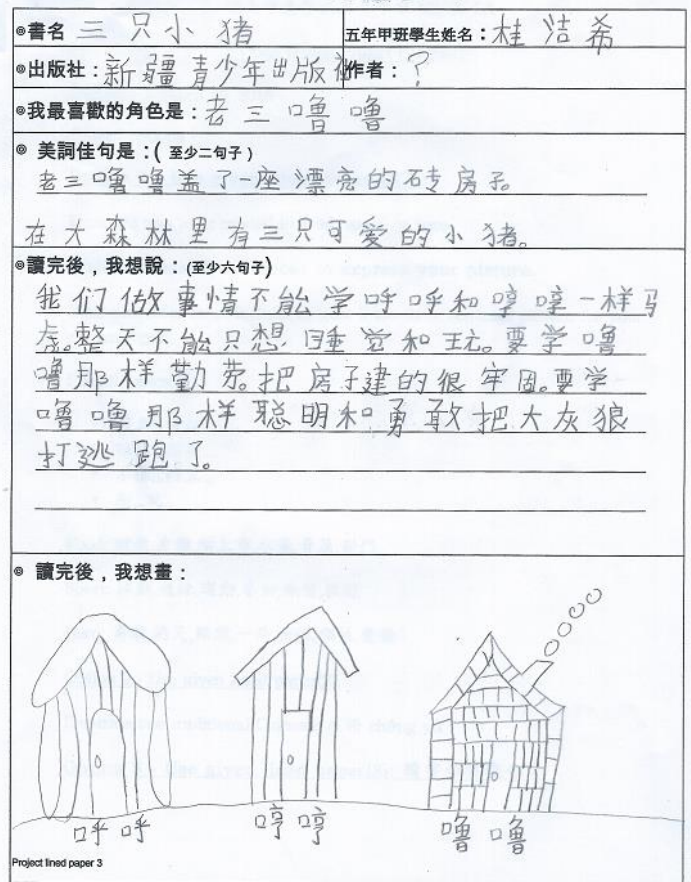 ◎書名 三只小猪
五年甲班學生姓名：桂洁希
◎出版社：新疆青少年出版社
作者：？
◎我最喜歡的角色是：老三噜噜
◎ 美詞佳句是：( 至少二句子 )
老三噜噜盖了一座漂亮的砖房子。
在大森林里有三只可爱的小猪。
◎讀完後，我想說：(至少六句子)
我们做事情不能学呼呼和哼哼一样马
虎。整天不能只想睡觉和玩。要学噜
噜那样勤劳。把房子建的很牢固。要学
噜噜那样聪明和勇敢把大灰狼
打逃跑了。
◎ 讀完後，我想畫：
呼呼
哼哼
噜噜
Project lined paper 3